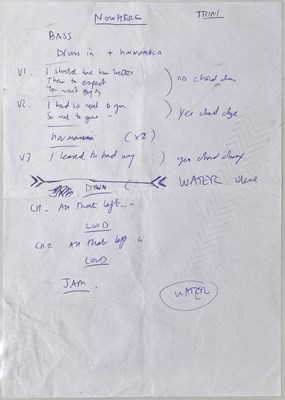 NOWHERE TRIM
BASS
Drums in + harmonica
V1. I should have known better
Than to expect
no chord
V2. I had so much to give
So much to give -
yes chord
harmonica (x2)
V3 I learned the hard way
yes chord change
DOWN ( WATER
CH. All that's left
LOUD
CH2 All that left is
LOUD
JAM.
WATER